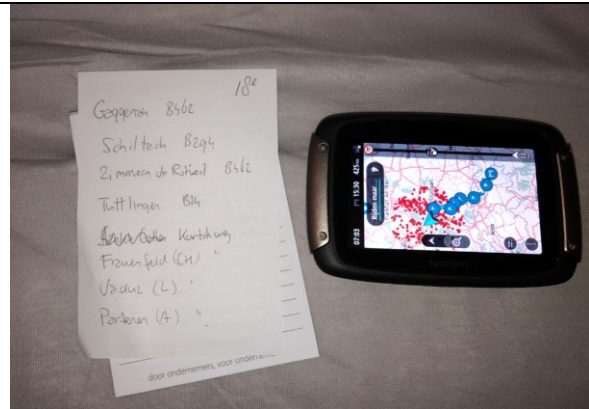 18e
Gaggenau B462
Schiltach B294
Zimmern ob Rottweil B462
Tuttlingen B14
Frauenfeld (CH) "
Vaduz (L) "
Partenen (A) "
door ondernemers, voor ondern
07:03 15:30 425
Rijden naar
TOMTOM